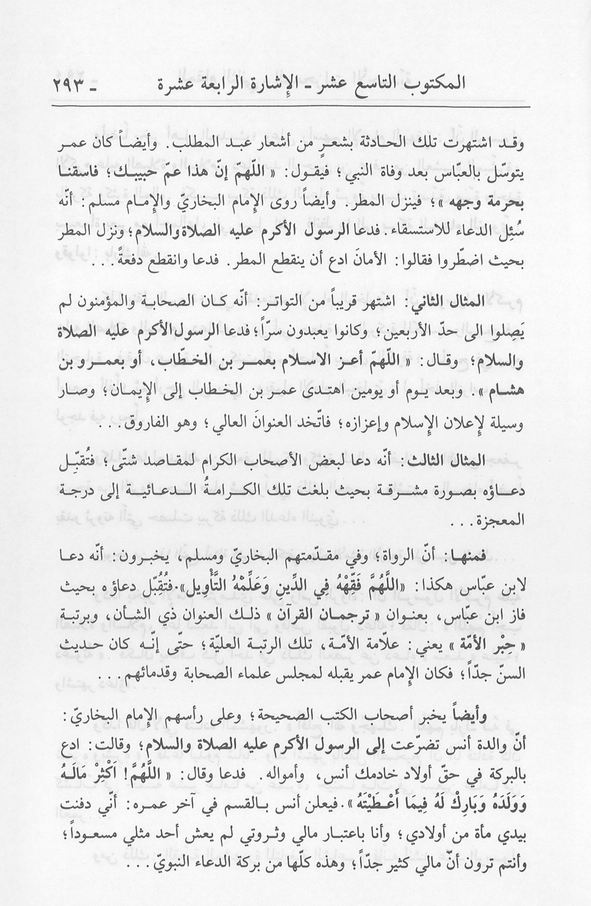 المكتوب التاسع عشر ـ الإشارة الرابعة عشرة
ـ ٢٩٣
وقد اشتهرت تلك الحادثة بشعرٍ من أشعار عبد المطلب. وأيضاً كان عمر
يتوسّل بالعبّاس بعد وفاة النبي؛ فيقول: « اللّهمّ إنّ هذا عمّ حبيبك؛ فاسقنا
بحرمة وجهه »؛ فينزل المطر. وأيضاً روى الإمام البخاريّ والإمام مسلم: أنّه
سُئِل الدعاء للاستسقاء.فدعا الرسول الأكرم عليه الصلاة والسلام؛ ونزل المطر
بحيث اضطّروا فقالوا: الأمانَ ادع أن ينقطع المطر. فدعا وانقطع دفعةً...
المثال الثاني: اشتهر قريباً من التواتر: أنّه كان الصحابة والمؤمنون لم
يَصِلوا الى حدّ الأربعين؛ وكانوا يعبدون سرّاً؛ فدعا الرسول الأكرم عليه الصلاة
والسلام؛ وقال: « اللّهمّ أعز الاسلام بعمر بن الخطّاب، أو بعمرو بن
هشام ». وبعد يوم أو يومين اهتدى عمر بن الخطاب إلى الإيمان؛ وصار
وسيلة لإعلان الإسلام وإعزازه؛ فاتّخد العنوانَ العالي؛ وهو الفاروق...
المثال الثالث: أنّه دعا لبعض الأصحاب الكرام لمقاصد شتّى؛ فتُقبّل
دعاؤه بصورة مشرقة بحيث بلغت تلك الكرامةُ الدعائية إلى درجة
المعجزة...
فمنها: أنّ الرواة؛ وفي مقدّمتهم البخاريّ ومسلم، يخبرون: أنّه دعا
لابن عبّاس هكذا: «اللَّهُمَّ فَقِّهْهُ فِي الدِّينِ وَعَلِّمْهُ التَّأْوِيل».فتُقُبّل دعاؤه بحيث
فاز ابن عبّاس، بعنوان « ترجمان القرآن » ذلك العنوان ذي الشأن، وبرتبة
« حِبْر الأمّة » يعني: علاّمة الأمّة، تلك الرتبة العليّة؛ حتّى إنّه كان حديث
السنّ جدّاً؛ فكان الإمام عمر يقبله لمجلس علماء الصحابة وقدمائهم...
وأيضاً يخبر أصحاب الكتب الصحيحة؛ وعلى رأسهم الإمام البخاريّ:
أنّ والدة أنس تضرّعت إلى الرسول الأكرم عليه الصلاة والسلام؛ وقالت: ادع
بالبركة في حقّ أولاد خادمك أنس، وأمواله. فدعا وقال: « اللَّهُمَّ! اَكْثِرْ مَالَهُ
وَوَلَدَهُ وَبَارِكْ لَهُ فِيمَا أَعْطَيْتَهُ ».فيعلن أنس بالقسم في آخر عمره: أنّي دفنت
بيدي مأة من أولادي؛ وأنا باعتبار مالي وثروتي لم يعش أحد مثلي مسعوداً؛
وأنتم ترون أنّ مالي كثير جدّاً؛ وهذه كلّها من بركة الدعاء النبويّ...